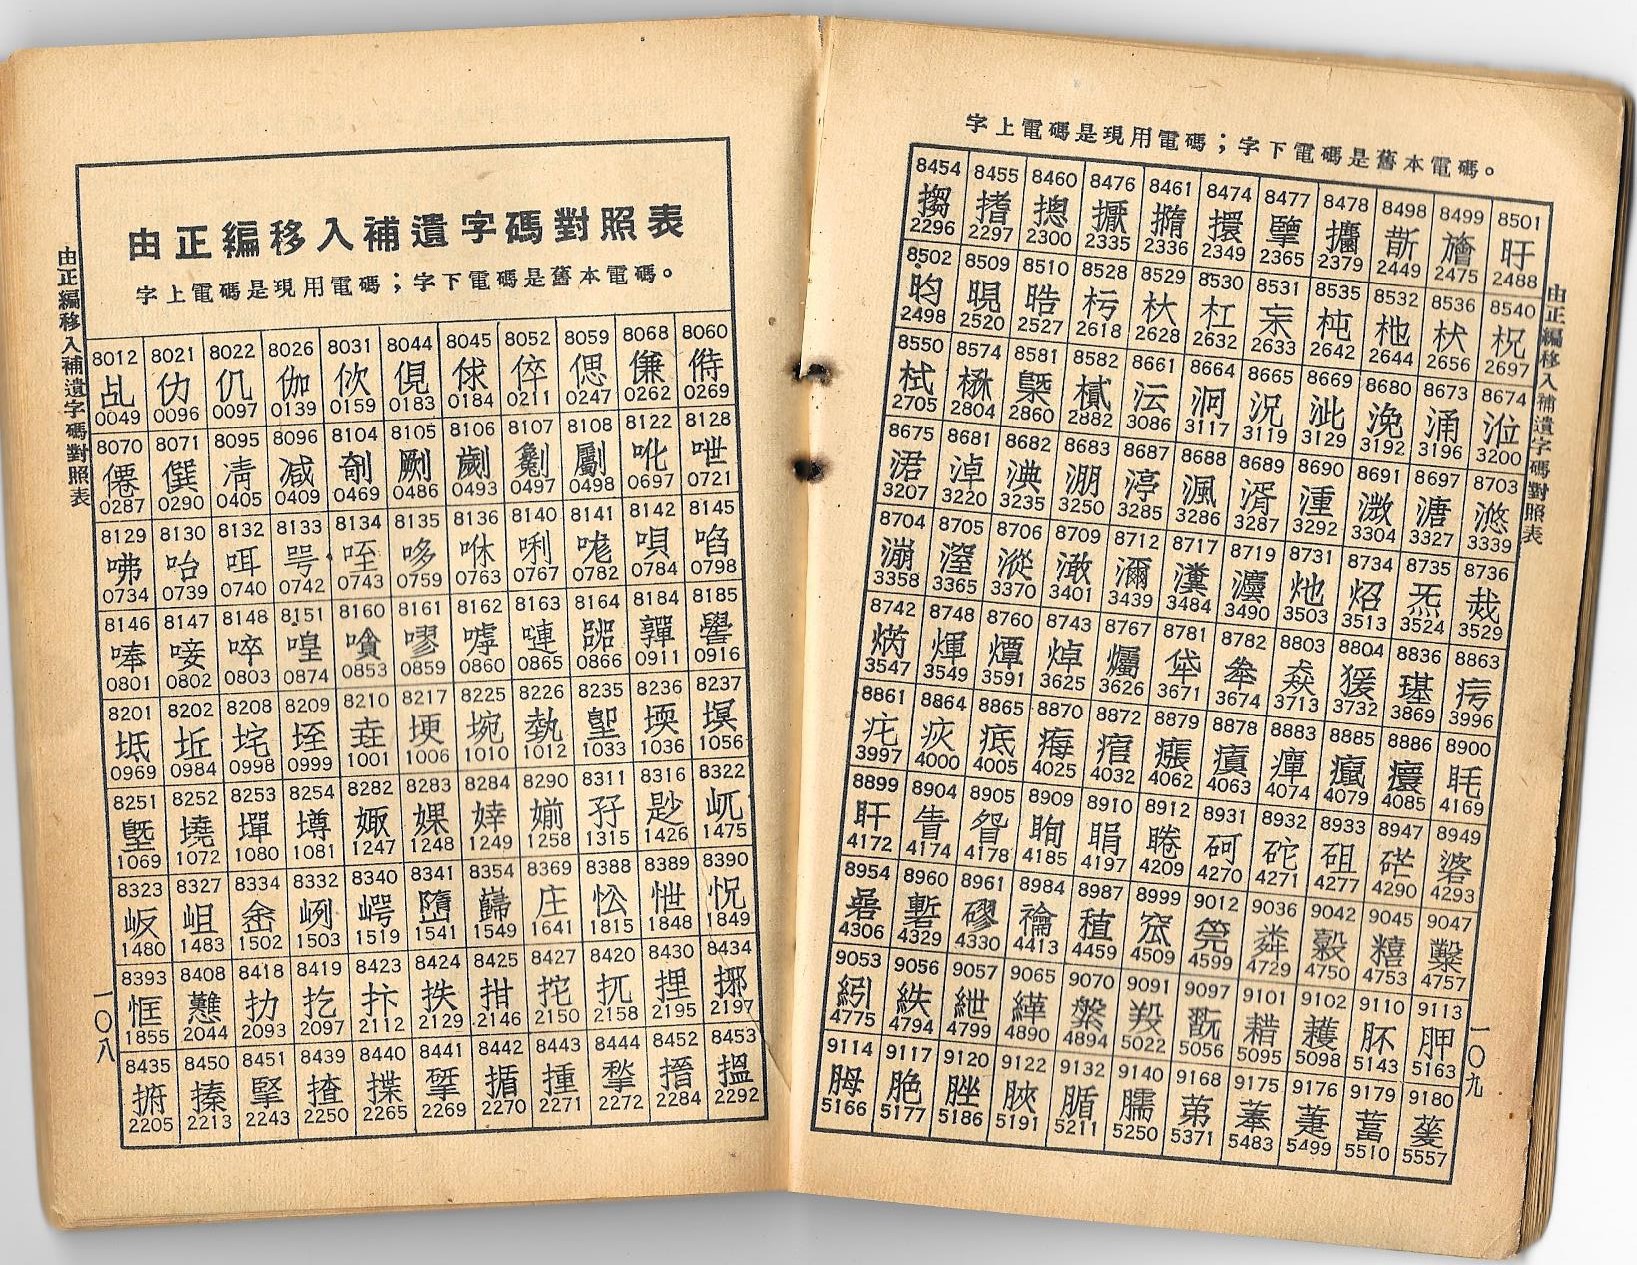 由正編移入補遺字碼對照表
字上電碼是現用電碼；字下電碼是舊本電碼。
8012 8021 8022 8026 8031 8044 8045 8052 8059 8068 8060
乩 仂 仉 伽 佽 俔 俅 倅 偲 傔 偫
0049 0096 0097 0139 0159 0183 0184 0211 0247 0262 0269
8070 8071 8095 8096 8104 8105 8106 8107 8108 8122 8128
僊 僎 凊 减 剞 劂 劌 劖 劚 吪 呭
0287 0290 0405 0409 0469 0486 0493 0497 0498 0697 0721
8129 8130 8132 8133 8134 8135 8136 8140 8141 8142 8145
咈 咍 咡 咢 咥 哆 咻 唎 唕 唄 啗
0734 0739 0740 0742 0743 0759 0763 0767 0782 0784 0798
8146 8147 8148 8151 8160 8161 8162 8163 8164 8184 8185
唪 唼 啐 喤 嗿 嘐 嘑 嗹 噐 嚲 嚳
0801 0802 0803 0874 0853 0859 0860 0865 0866 0911 0916
8201 8202 8208 8209 8210 8217 8225 8226 8235 8236 8237
坻 坵 垞 垤 垚 埂 埦 埶 堲 堧 塓
0969 0984 0998 0999 1001 1006 1010 1012 1033 1036 1056
8251 8252 8253 8254 8282 8283 8284 8290 8311 8316 8322
塈 墝 墠 墫 娵 婐 婞 媊 孖 尟 屼
1069 1072 1080 1081 1247 1248 1249 1258 1315 1426 1475
8323 8327 8334 8332 8340 8341 8354 8369 8388 8389 8390
岅 岨 峹 峛 崿 嶞 巋 庄 忪 怈 怳
1480 1483 1502 1503 1519 1541 1549 1641 1815 1848 1849
8393 8408 8418 8419 8423 8424 8425 8427 8420 8430 8434
恇 戁 扐 扢 抃 抶 拑 拕 扤 捚 挪
1855 2044 2093 2097 2112 2129 2146 2150 2158 2195 2197
8435 8450 8451 8439 8440 8441 8442 8443 8444 8452 8453
捬 搸 掔 揸 揲 揅 揗 揰 搫 搢 搵
2205 2213 2243 2250 2265 2269 2270 2271 2272 2284 2292
由正編移入補遺字碼對照表
一〇八
字上電碼是現用電碼；字下電碼是舊本電碼。
8454 8455 8460 8476 8461 8474 8477 8478 8498 8499 8501
搊 搘 摠 擫 擩 擐 擥 攟 斮 旝 旴
2296 2297 2300 2335 2336 2349 2365 2379 2449 2475 2488
8502 8509 8510 8528 8529 8530 8531 8535 8532 8536 8540
昀 晛 晧 杇 杕 杠 杗 杶 杝 枤 柷
2498 2520 2527 2618 2628 2632 2633 2642 2644 2656 2697
8550 8574 8581 8582 8661 8664 8665 8669 8680 8673 8674
栻 楙 槩 樲 沄 泂 況 泚 浼 涌 涖
2705 2804 2860 2882 3086 3117 3119 3129 3192 3196 3200
8675 8681 8682 8683 8687 8688 8689 8690 8691 8697 8703
涒 淖 淟 淜 渟 渢 湑 湩 溦 溏 滺
3207 3220 3235 3250 3285 3286 3287 3292 3304 3327 3339
8704 8705 8706 8709 8712 8717 8719 8731 8734 8735 8736
漰 漥 漎 澉 濔 瀵 灀 灺 炤 炁 烖
3358 3365 3370 3401 3439 3484 3490 3503 3513 3524 3529
8742 8748 8760 8743 8767 8781 8782 8803 8804 8836 8863
焫 煇 燂 焯 爥 牮 牶 猋 猨 璂 疞
3547 3549 3591 3625 3626 3671 3674 3713 3732 3869 3996
8861 8864 8865 8870 8872 8879 8878 8883 8885 8886 8900
疕 疢 疧 痗 痯 瘬 瘨 癉 癘 癭 眊
3997 4000 4005 4025 4032 4062 4063 4074 4079 4085 4169
8899 8904 8905 8909 8910 8912 8931 8932 8933 8947 8949
盰 眚 眢 眴 睊 睠 砢 砣 砠 硭 碆
4172 4174 4178 4185 4197 4209 4270 4271 4277 4290 4293
8954 8960 8961 8984 8987 8999 9012 9036 9042 9045 9047
碞 磛 磟 禴 稙 窊 筦 粦 糓 糦 糳
4306 4329 4330 4413 4459 4509 4599 4729 4750 4753 4757
9053 9056 9057 9065 9070 9091 9097 9101 9102 9110 9113
紖 紩 紲 緙 縏 羖 翫 耤 耯 肧 胛
4775 4794 4799 4890 4894 5022 5056 5095 5098 5143 5163
9114 9117 9120 9122 9132 9140 9168 9175 9176 9179 9180
胟 脃 脞 脥 腯 臑 茀 菶 萐 葍 葼
5166 5177 5186 5191 5211 5250 5371 5483 5499 5510 5557
由正編移入補遺字碼對照表
一〇九